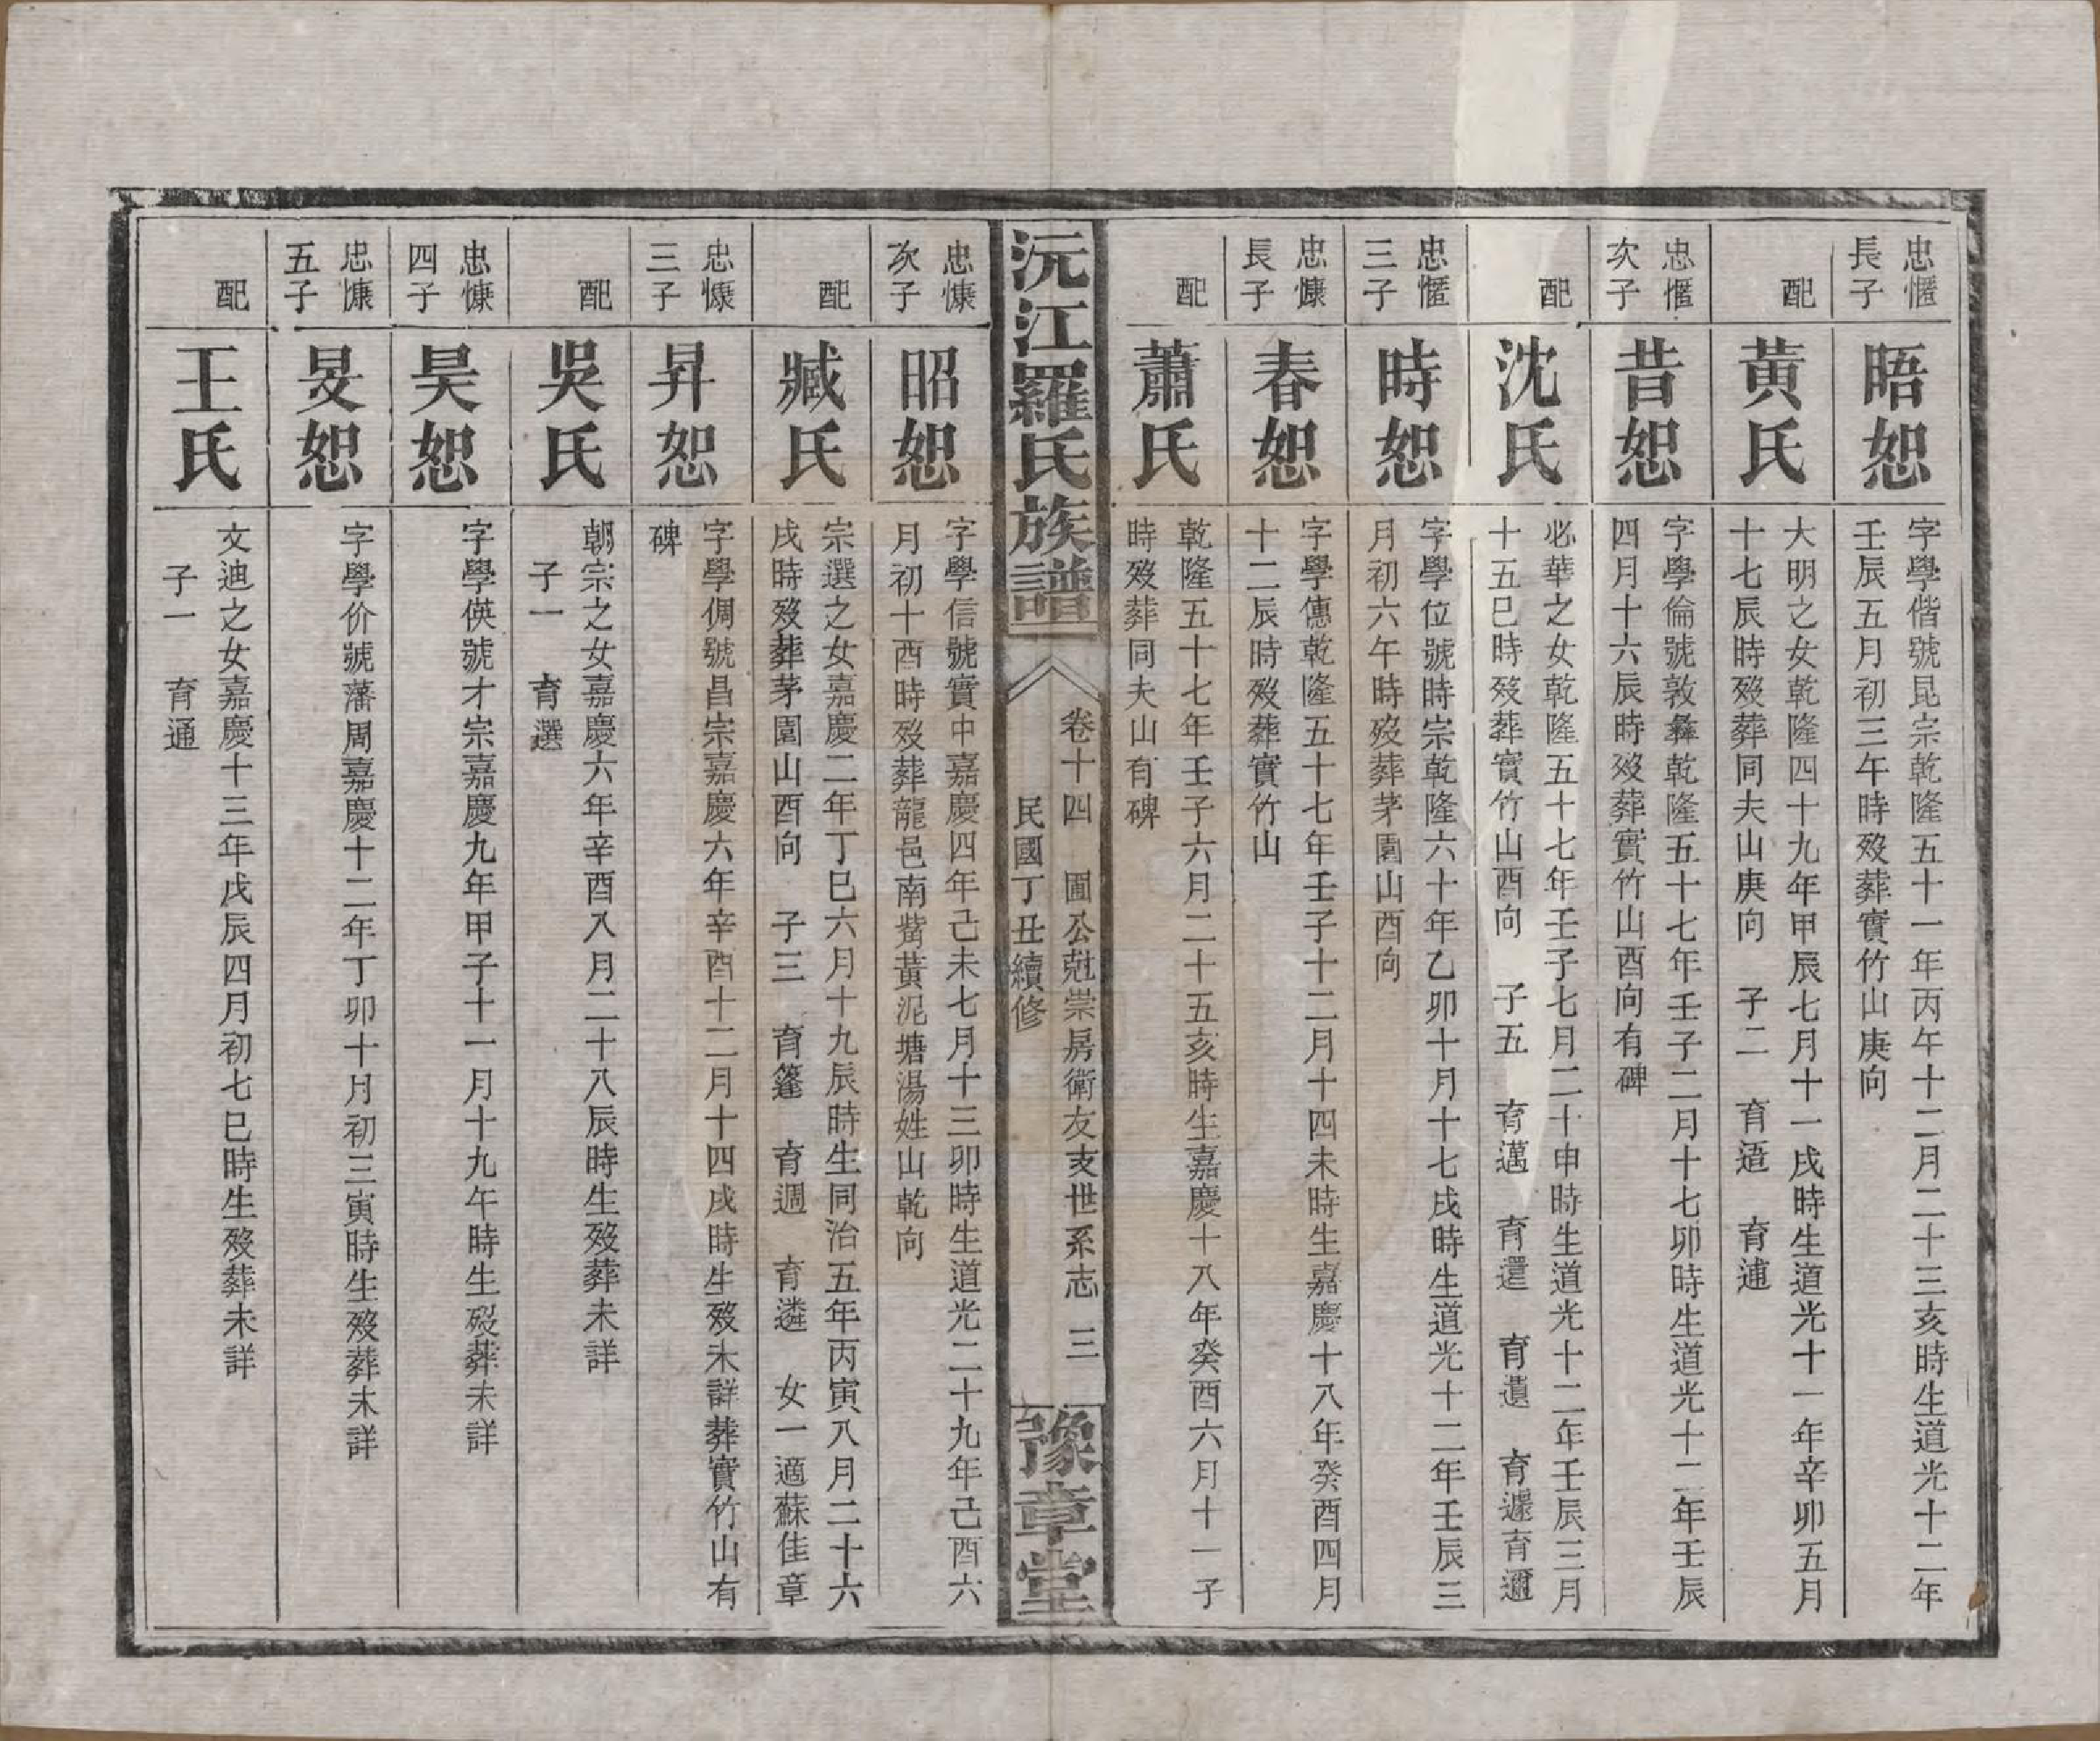 忠㥣
長子
晤恕
字學偕號昆宗乾隆五十一年丙午十二月二十三亥時生道光十二年
壬辰五月初三午時歿葬實竹山庚向
配
黄氏
大明之女乾隆四十九年甲辰七月十一戌時生道光十一年辛卯五月
十七辰時歿葬同夫山庚向 子二 育逪 育逋
忠㥣
次子
昔恕
字學倫號敦彝乾隆五十七年壬子二月十七卯時生道光十二年壬辰
四月十六辰時歿葬實竹山酉向有碑
配
沈氏
必華之女乾隆五十七年壬子七月二十申時生道光十二年壬辰三月
十五巳時歿葬實竹山酉向 子五 育邁 育還 育遺 育遷 育邇
忠㥣
三子
時恕
字學位號時宗乾隆六十年乙卯十月十七戌時生道光十二年壬辰三
月初六午時歿葬茅園山酉向
忠慷
長子
春恕
字學傳乾隆五十七年壬子十二月十四未時生嘉慶十八年癸酉四月
十二辰時歿葬實竹山
配
蕭氏
乾隆五十七年壬子六月二十五亥時生嘉慶十八年癸酉六月十一子
時歿葬同夫山有碑
沅江羅氏族譜
卷十四 圖公尅崇房衛友支世系志 三
民國丁丑續修
豫章堂
忠慷
次子
昭恕
字學信號實中嘉慶四年己未七月十三卯時生道光二十九年己酉六
月初十酉時歿葬龍邑南觜黃泥塘湯姓山乾向
配
臧氏
宗選之女嘉慶二年丁巳六月十九辰時生同治五年丙寅八月二十六
戌時歿葬茅園山酉向 子三 育篷 育週 育遴 女一適蘇佳章
忠慷
三子
昇恕
字學倜號昌宗嘉慶六年辛酉十二月十四戌時生歿未詳葬實竹山有
碑
配
吳氏
朝宗之女嘉慶六年辛酉八月二十八辰時生歿葬未詳
子一 育選
忠慷
四子
昊恕
字學偀號才宗嘉慶九年甲子十一月十九午時生歿葬未詳
忠慷
五子
旻恕
字學价號藩周嘉慶十二年丁卯十月初三寅時生歿葬未詳
配
王氏
文迪之女嘉慶十三年戊辰四月初七巳時生歿葬未詳
子一 育通